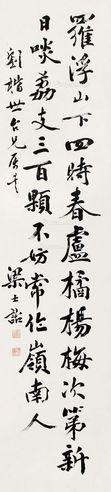 羅浮山下四時春盧橘楊梅次第新
日啖荔支三百顆不妨常作嶺南人
劉楷世台兄屬
梁士詒